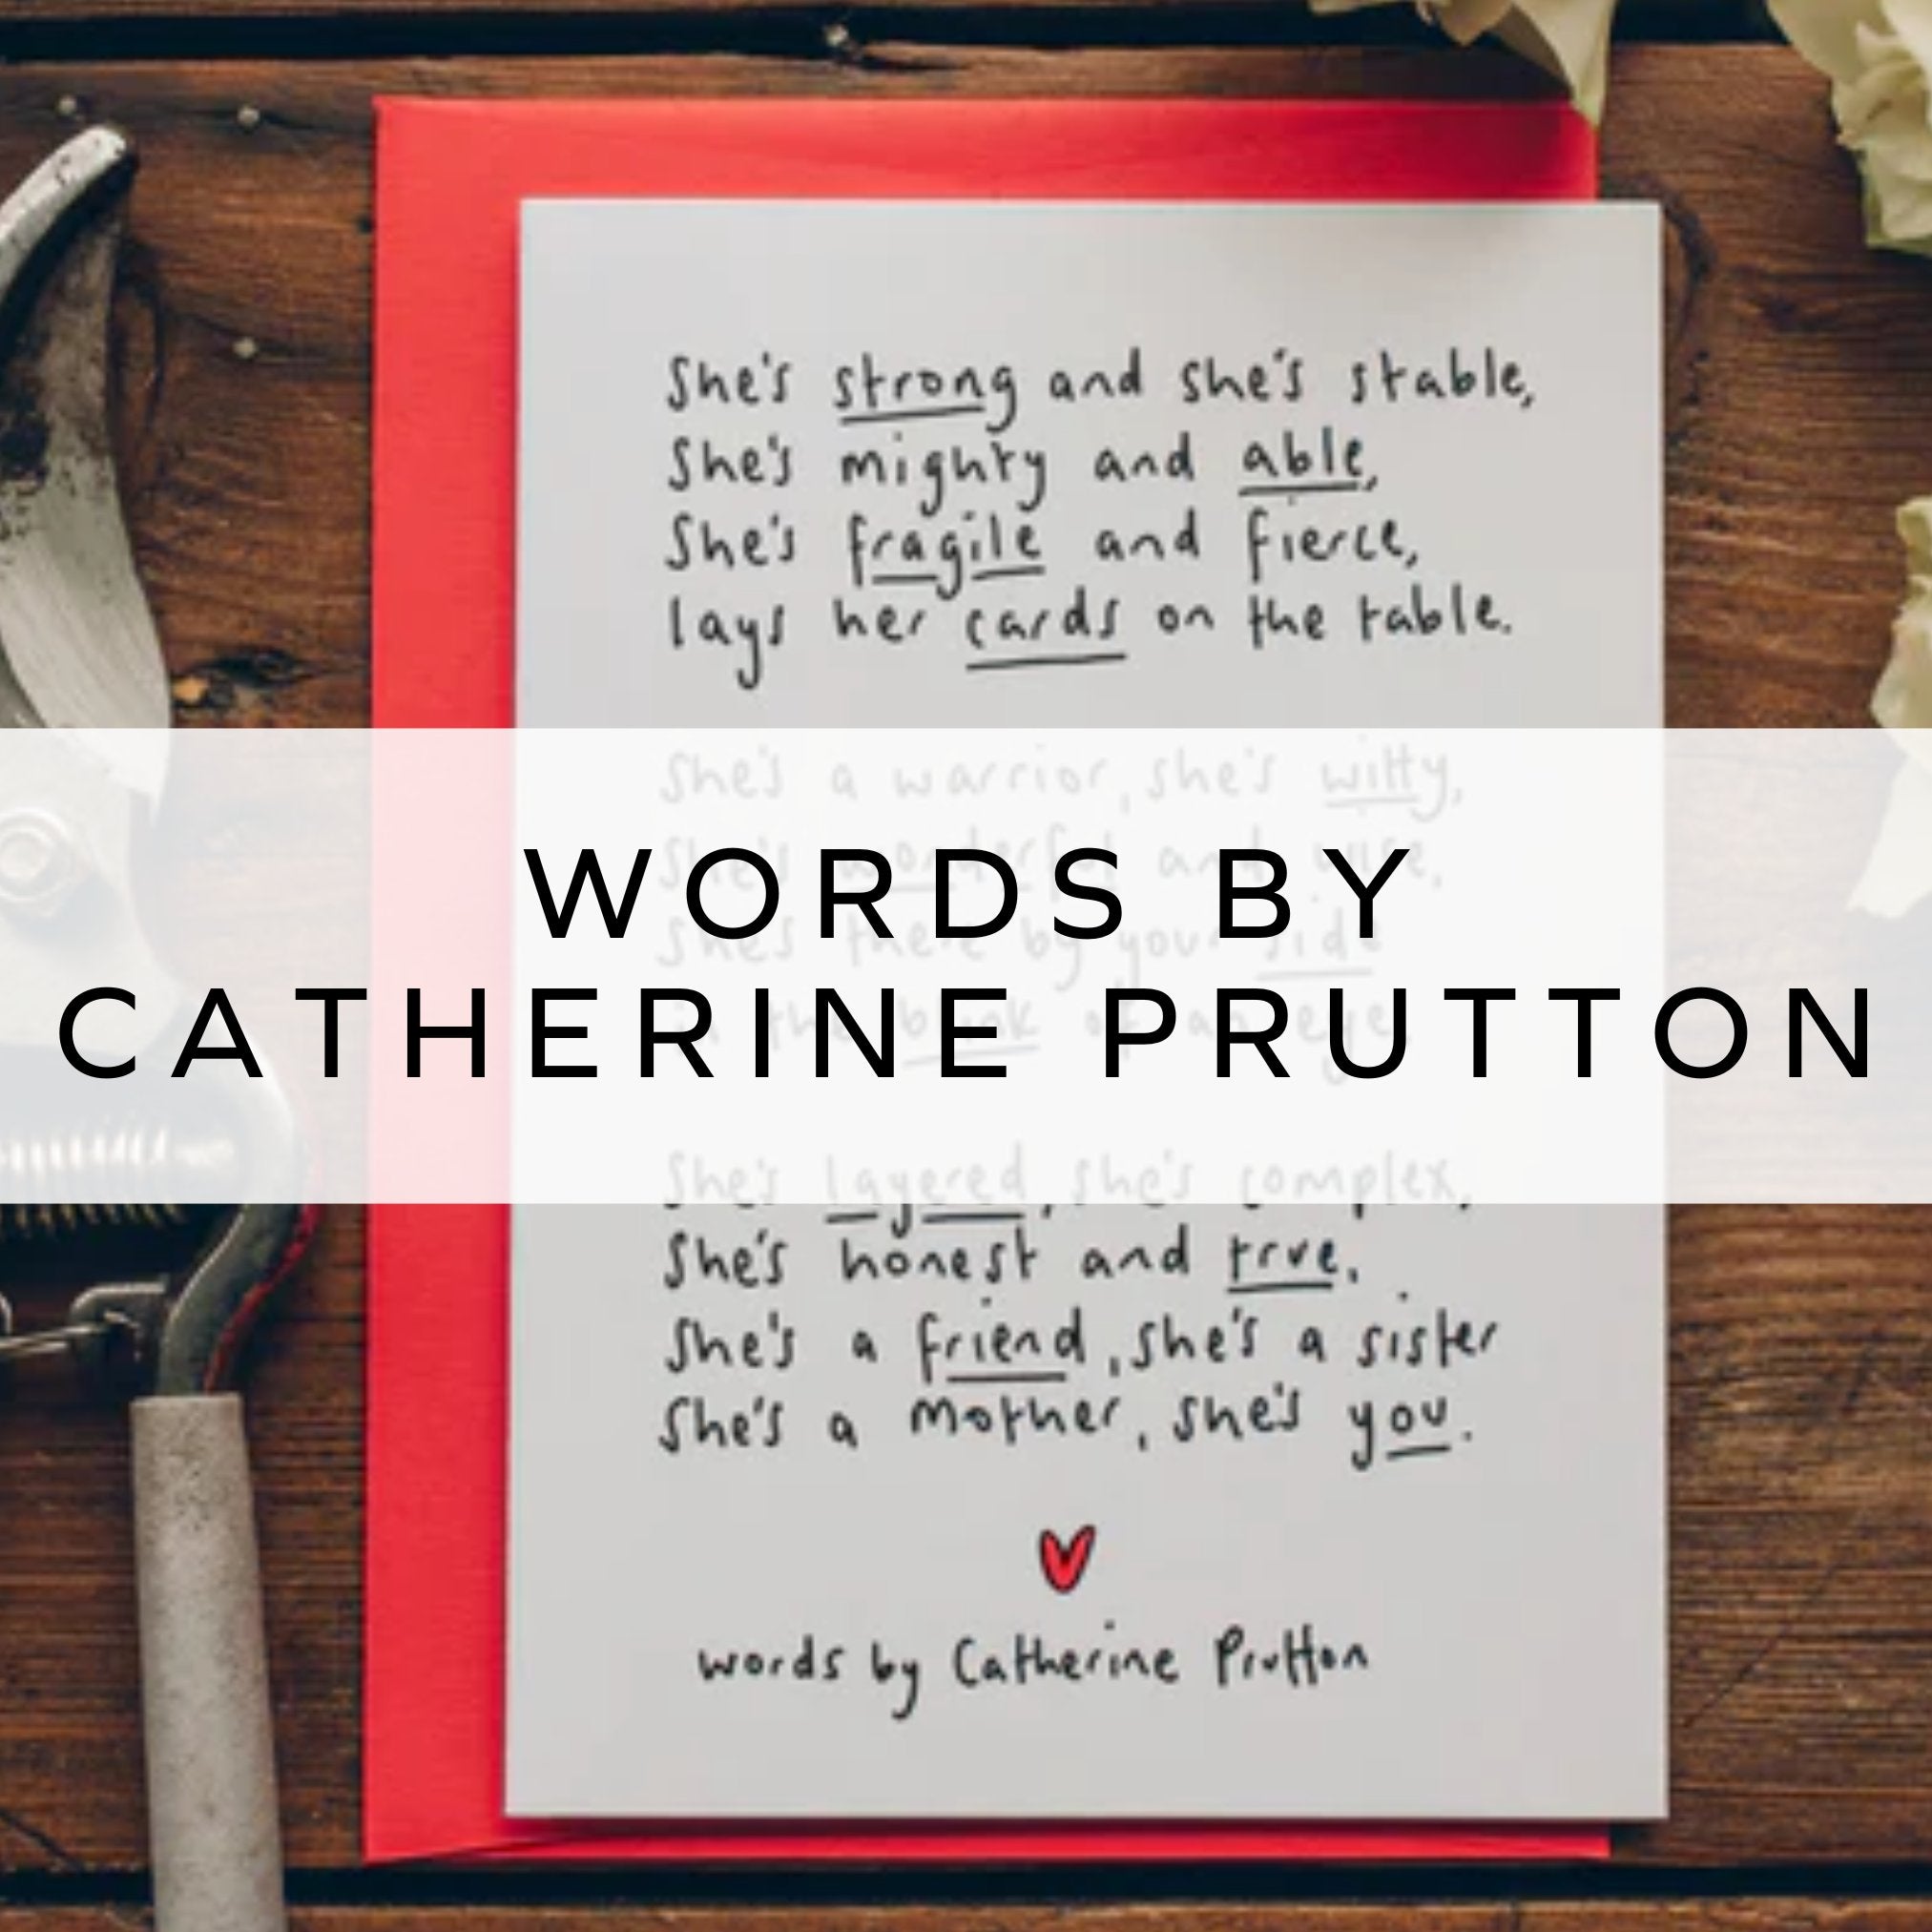 She's strong and she's stable,
She's mighty and able,
She's fragile and fierce,
lays her cards on the table.
She's a warrior, she's witty,
She's wonderful and wise,
WORDS BY
She's there by your side
CATHERINE PRUTTON
in the blink of an eye.
She's layered, she's complex,
She's honest and true.
She's a friend, she's a sister
She's a mother, she's you.
words by Catherine Prutton